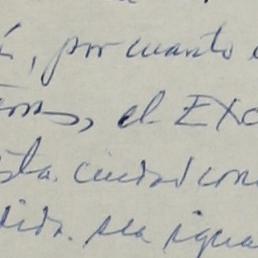 , por cuanto
, el EXC
sta. ciudad con
dida. sea igua